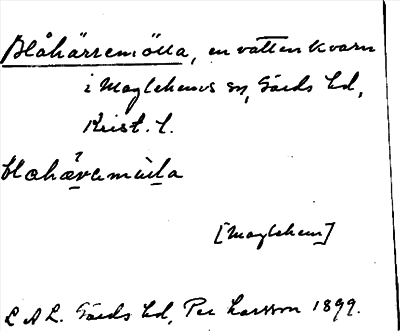 Blåhärremölla, en vattenkvarn
i Maglehems sn, Gärds hd,
Krist. l.
blahäremùla
[Maglehem]
LAL. Gärds hd, Per Larsson 1899.